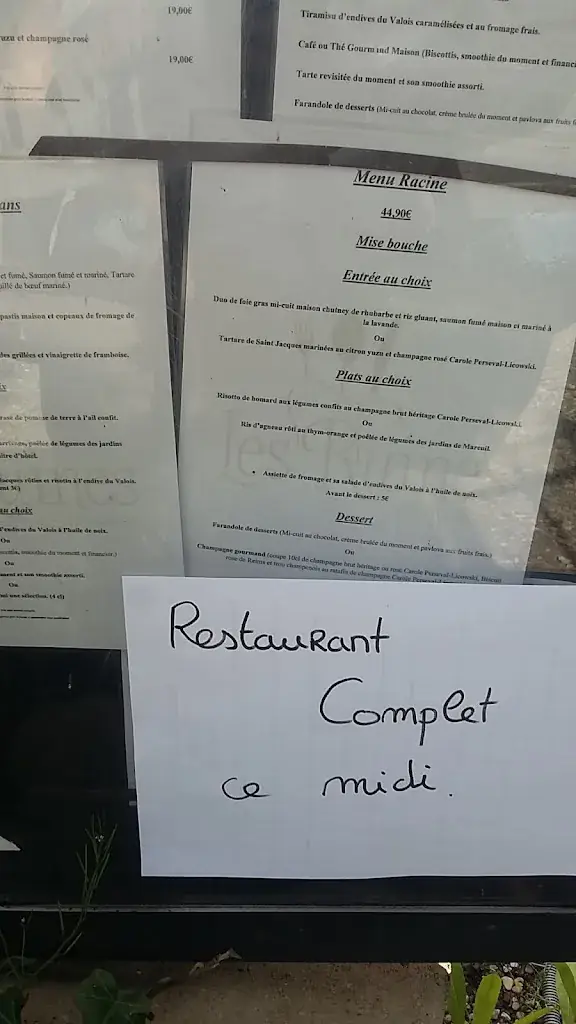 19,00€
yuzu et champagne rosé
19,00€
Tiramisu d'endives du Valois caramélisées et au fromage frais.
Café ou Thé Gourmand Maison (Biscottis, smoothie du moment et financi
Tarte revisitée du moment et son smoothie assorti.
Farandole de desserts (Mi-cuit au chocolat, crème brulée du moment et pavlova aux fruits
ans
et fumé, Saumon fumé et mariné, Tartare
de bœuf mariné.)
pastis maison et copeaux de fromage de
des grillées et vinaigrette de framboise.
de pomme de terre à l'ail confit.
poêlée de légumes des jardins
d'hôtel.
Jacques rôties et risotto à l'endive du Valois.
au choix
d'endives du Valois à l'huile de noix.
Ou
smoothie du moment et financier.)
Ou
moment et son smoothie assorti.
Ou
une sélection. (4 €)
Menu Racine
44,90€
Mise bouche
Entrée au choix
Duo de foie gras mi-cuit maison chutney de rhubarbe et riz gluant, saumon fumé maison et mariné à
la lavande.
Ou
Tartare de Saint Jacques marinées au citron yuzu et champagne rosé Carole Perseval-Licowski.
Plats au choix
Risotto de homard aux légumes confits au champagne brut héritage Carole Perseval-Licowski.
Ou
Ris d'agneau rôti au thym-orange et poêlée de légumes des jardins de Mareuil.
• Assiette de fromage et sa salade d'endives du Valois à l'huile de noix.
Avant le dessert : 5€
Dessert
Farandole de desserts (Mi-cuit au chocolat, crème brulée du moment et pavlova aux fruits frais.)
Ou
Champagne gourmand (coupe 10cl de champagne brut héritage ou rosé Carole Perseval-Licowski, Biscuit
rose de Reims et mou champenois au ratafia de champagne Carole
Restaurant
Complet
ce midi.